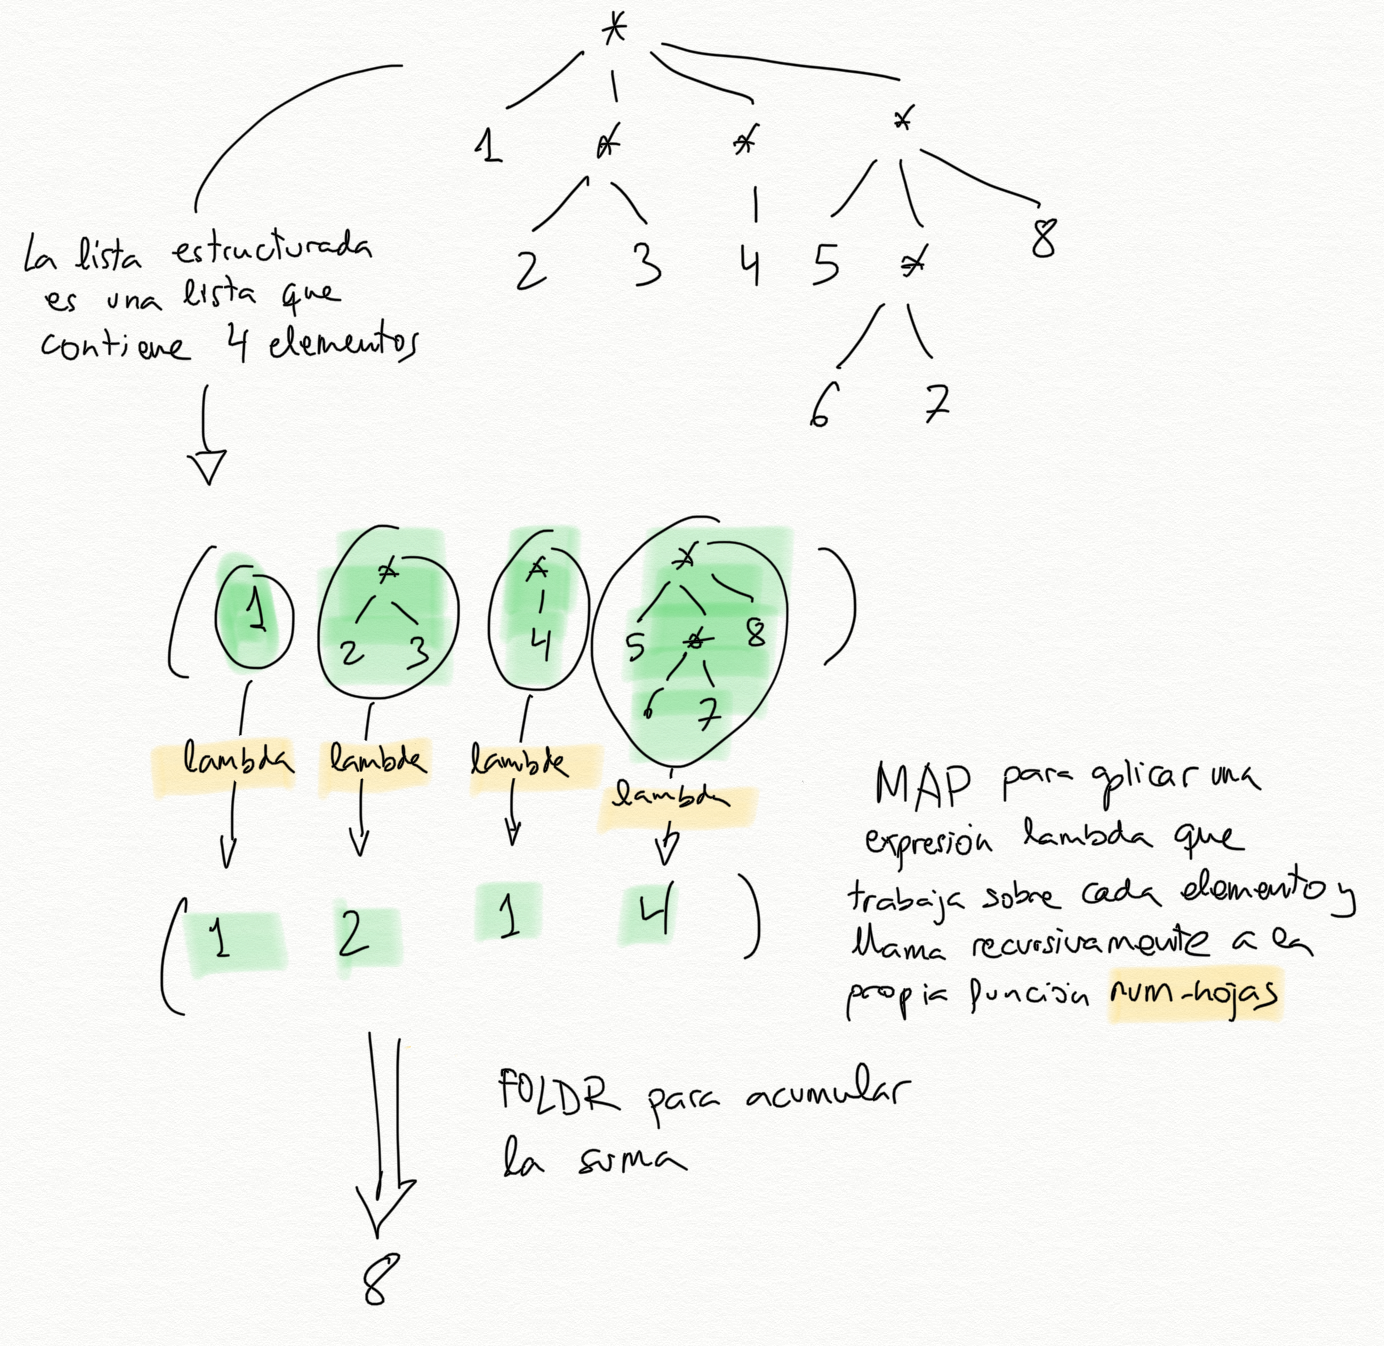 *
1 * * *
2 3 4 5 * 8
6 7
La lista estructurada
es una lista que
contiene 4 elementos
( 1 * * * )
2 3 4 5 * 8
6 7
lambda lambda lambda lambda
( 1 2 1 4 )
MAP para aplicar una
expresión lambda que
trabaja sobre cada elemento y
llama recursivamente a la
propia función num-hojas
FOLDR para acumular
la suma
8